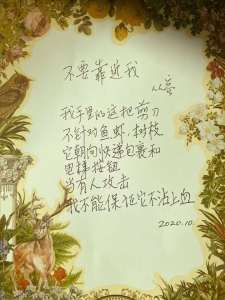 不要靠近我
从蓉
我手里的这把剪刀
不针对鱼虾、树枝
它朝向快递包裹和
电梯按钮
当有人攻击
我不能保证它不沾上血
2020.10.